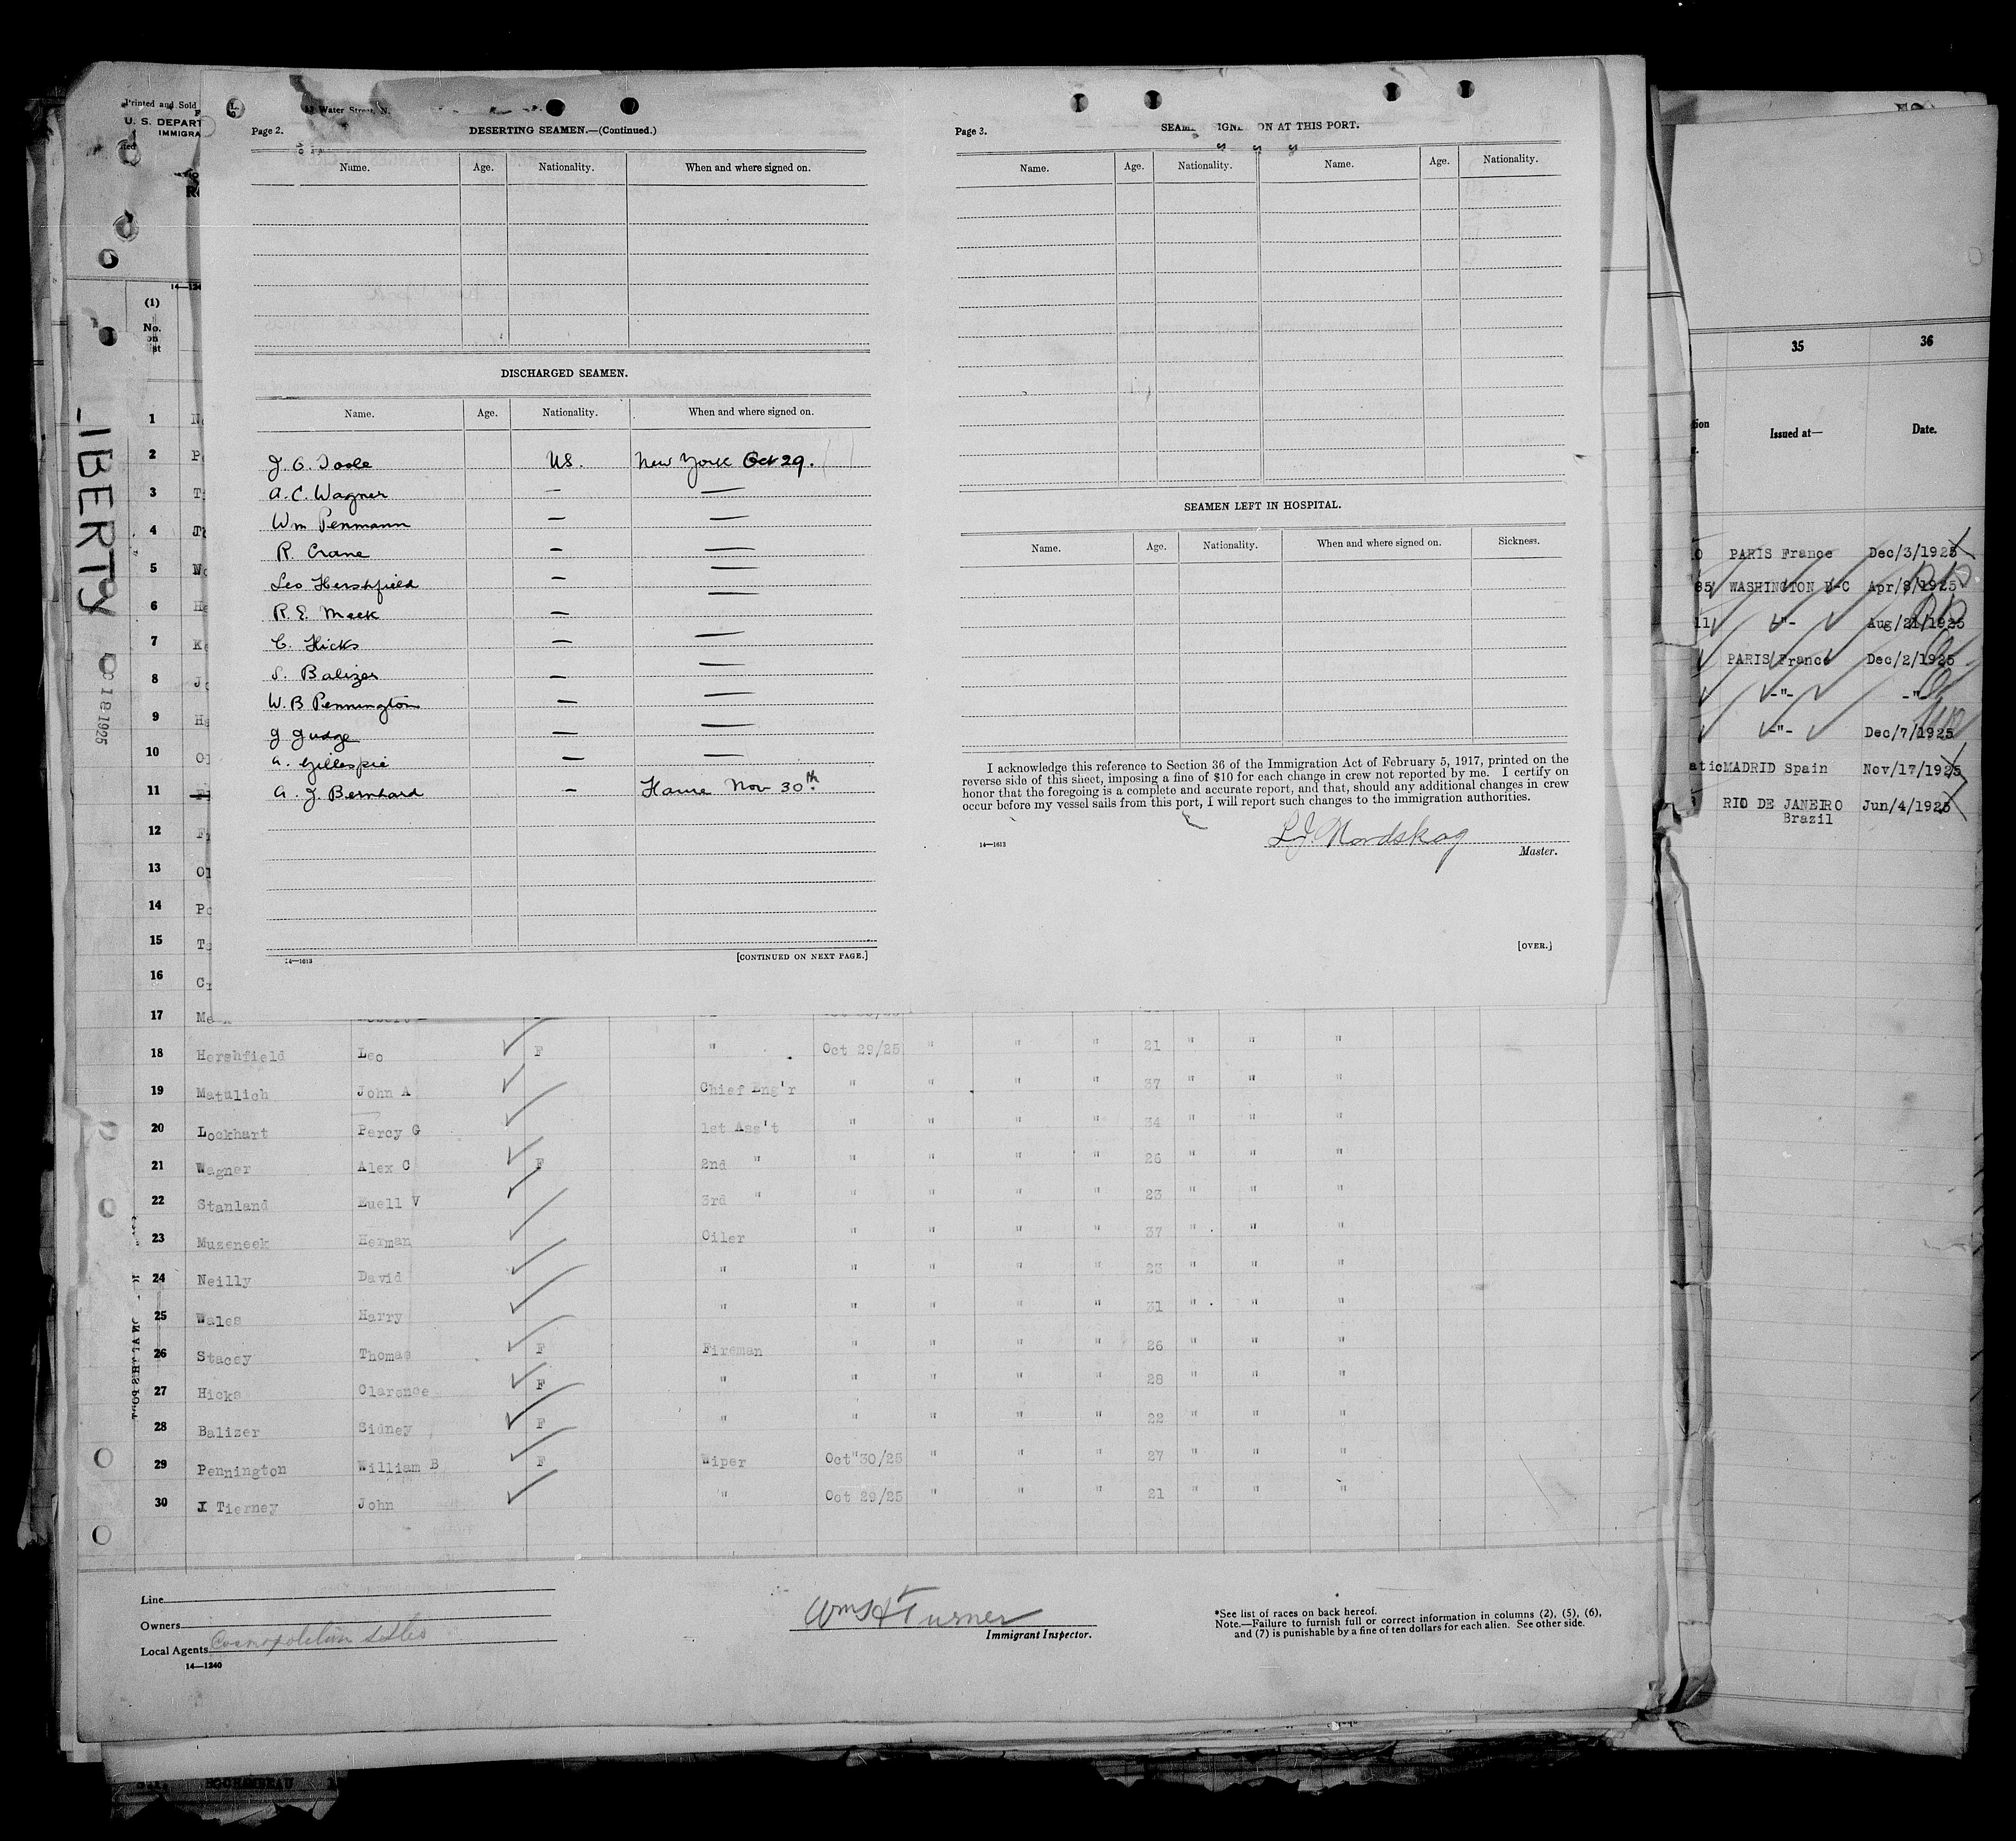 Printed and Sold
U. S. DEPART
IMMIGRA
Water Street, N.
Page 2.
DESERTING SEAMEN.—(Continued.)
Name. Age. Nationality. When and where signed on.
DISCHARGED SEAMEN.
Name. Age. Nationality. When and where signed on.
J. O. Toole US. New York Oct 29.
A. C. Wagner — —
Wm Penmann — —
R. Crane — —
Leo Hershfield — —
R. E. Meek — —
C. Hicks — —
S. Balizer — —
W. B Pennington — —
J Judge — —
A. Gillespie — —
A. J. Bernhard — Havre Nov 30th
14—1613
[CONTINUED ON NEXT PAGE.]
Page 3.
ON AT THIS PORT.
Name. Age. Nationality. Name. Age. Nationality.
SEAMEN LEFT IN HOSPITAL.
Name. Age. Nationality. When and where signed on. Sickness.
I acknowledge this reference to Section 36 of the Immigration Act of February 5, 1917, printed on the
reverse side of this sheet, imposing a fine of $10 for each change in crew not reported by me. I certify on
honor that the foregoing is a complete and accurate report, and that, should any additional changes in crew
occur before my vessel sails from this port, I will report such changes to the immigration authorities.
L. J. Nordskog
14—1613
Master.
[OVER.]
LIBERTY
18 1925
(1)
No.
on
1
2
3
4
5
6
7
8
9
10
11
12
13
14
15
16
17
18 Hershfield Leo F " Oct 29/25 " " " 21 " " "
19 Matulich John A Chief Eng'r " " " " 37 " " "
20 Lockhart Percy G 1st Ass't " " " " 34 " " "
21 Wagner Alex C F 2nd " " " " " 26 " " "
22 Stanland Euell V 3rd " " " " " 23 " " "
23 Museneek Herman Oiler " " " " 37 " " "
24 Neilly David " " " " " 23 " " "
25 Wales Harry " " " " " 31 " " "
26 Stacey Thomas F Fireman " " " " 26 " " "
27 Hicks Clarence F " " " " " 28 " " "
28 Balizer Sidney F " " " " " 22 " " "
29 Pennington William B F Wiper Oct"30/25 " " " 27 " " "
30 J Tierney John " Oct 29/25 " " " 21 " " "
Line
Owners
Local Agents Cosmopolitan
14—1240
Wm H Turner
Immigrant Inspector.
*See list of races on back hereof.
Note.—Failure to furnish full or correct information in columns (2), (5), (6),
and (7) is punishable by a fine of ten dollars for each alien. See other side.
35 36
Issued at— Date.
PARIS France Dec/3/1925
WASHINGTON D-C Apr/8/1925
-"- Aug/21/1925
PARIS France Dec/2/1925
-"- -"-
-"- Dec/7/1925
MADRID Spain Nov/17/1925
RIO DE JANEIRO Jun/4/1925
Brazil
ROCHAMBEAU